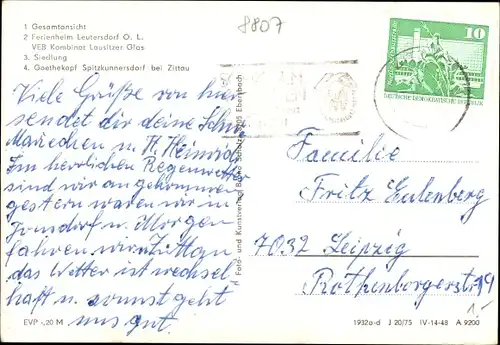 8807
1 Gesamtansicht
2 Ferienheim Leutersdorf O. L.
VEB Kombinat Lausitzer Glas
3. Siedlung
4. Goethekopf Spitzkunnersdorf bei Zittau
10
DEUTSCHE DEMOKRATISCHE REPUBLIK
Viele Grüße von hier
sendet dir deine
Mariechen u. H. Heinrich
Im herrlichen Regenwetter
sind wir angekommen
gestern waren wir in
Jonsdorf u. Morgen
fahren wir n. Zittau
das Wetter ist wechsel-
haft u. sonnst geht
uns gut.
Foto- und Kunstverlag
Familie
Fritz Eulenberg
7032 Leipzig
Rothenburgerstr. 19
1.-
EVP -,20 M
1932a-d J 20/75 IV-14-48 A 9200